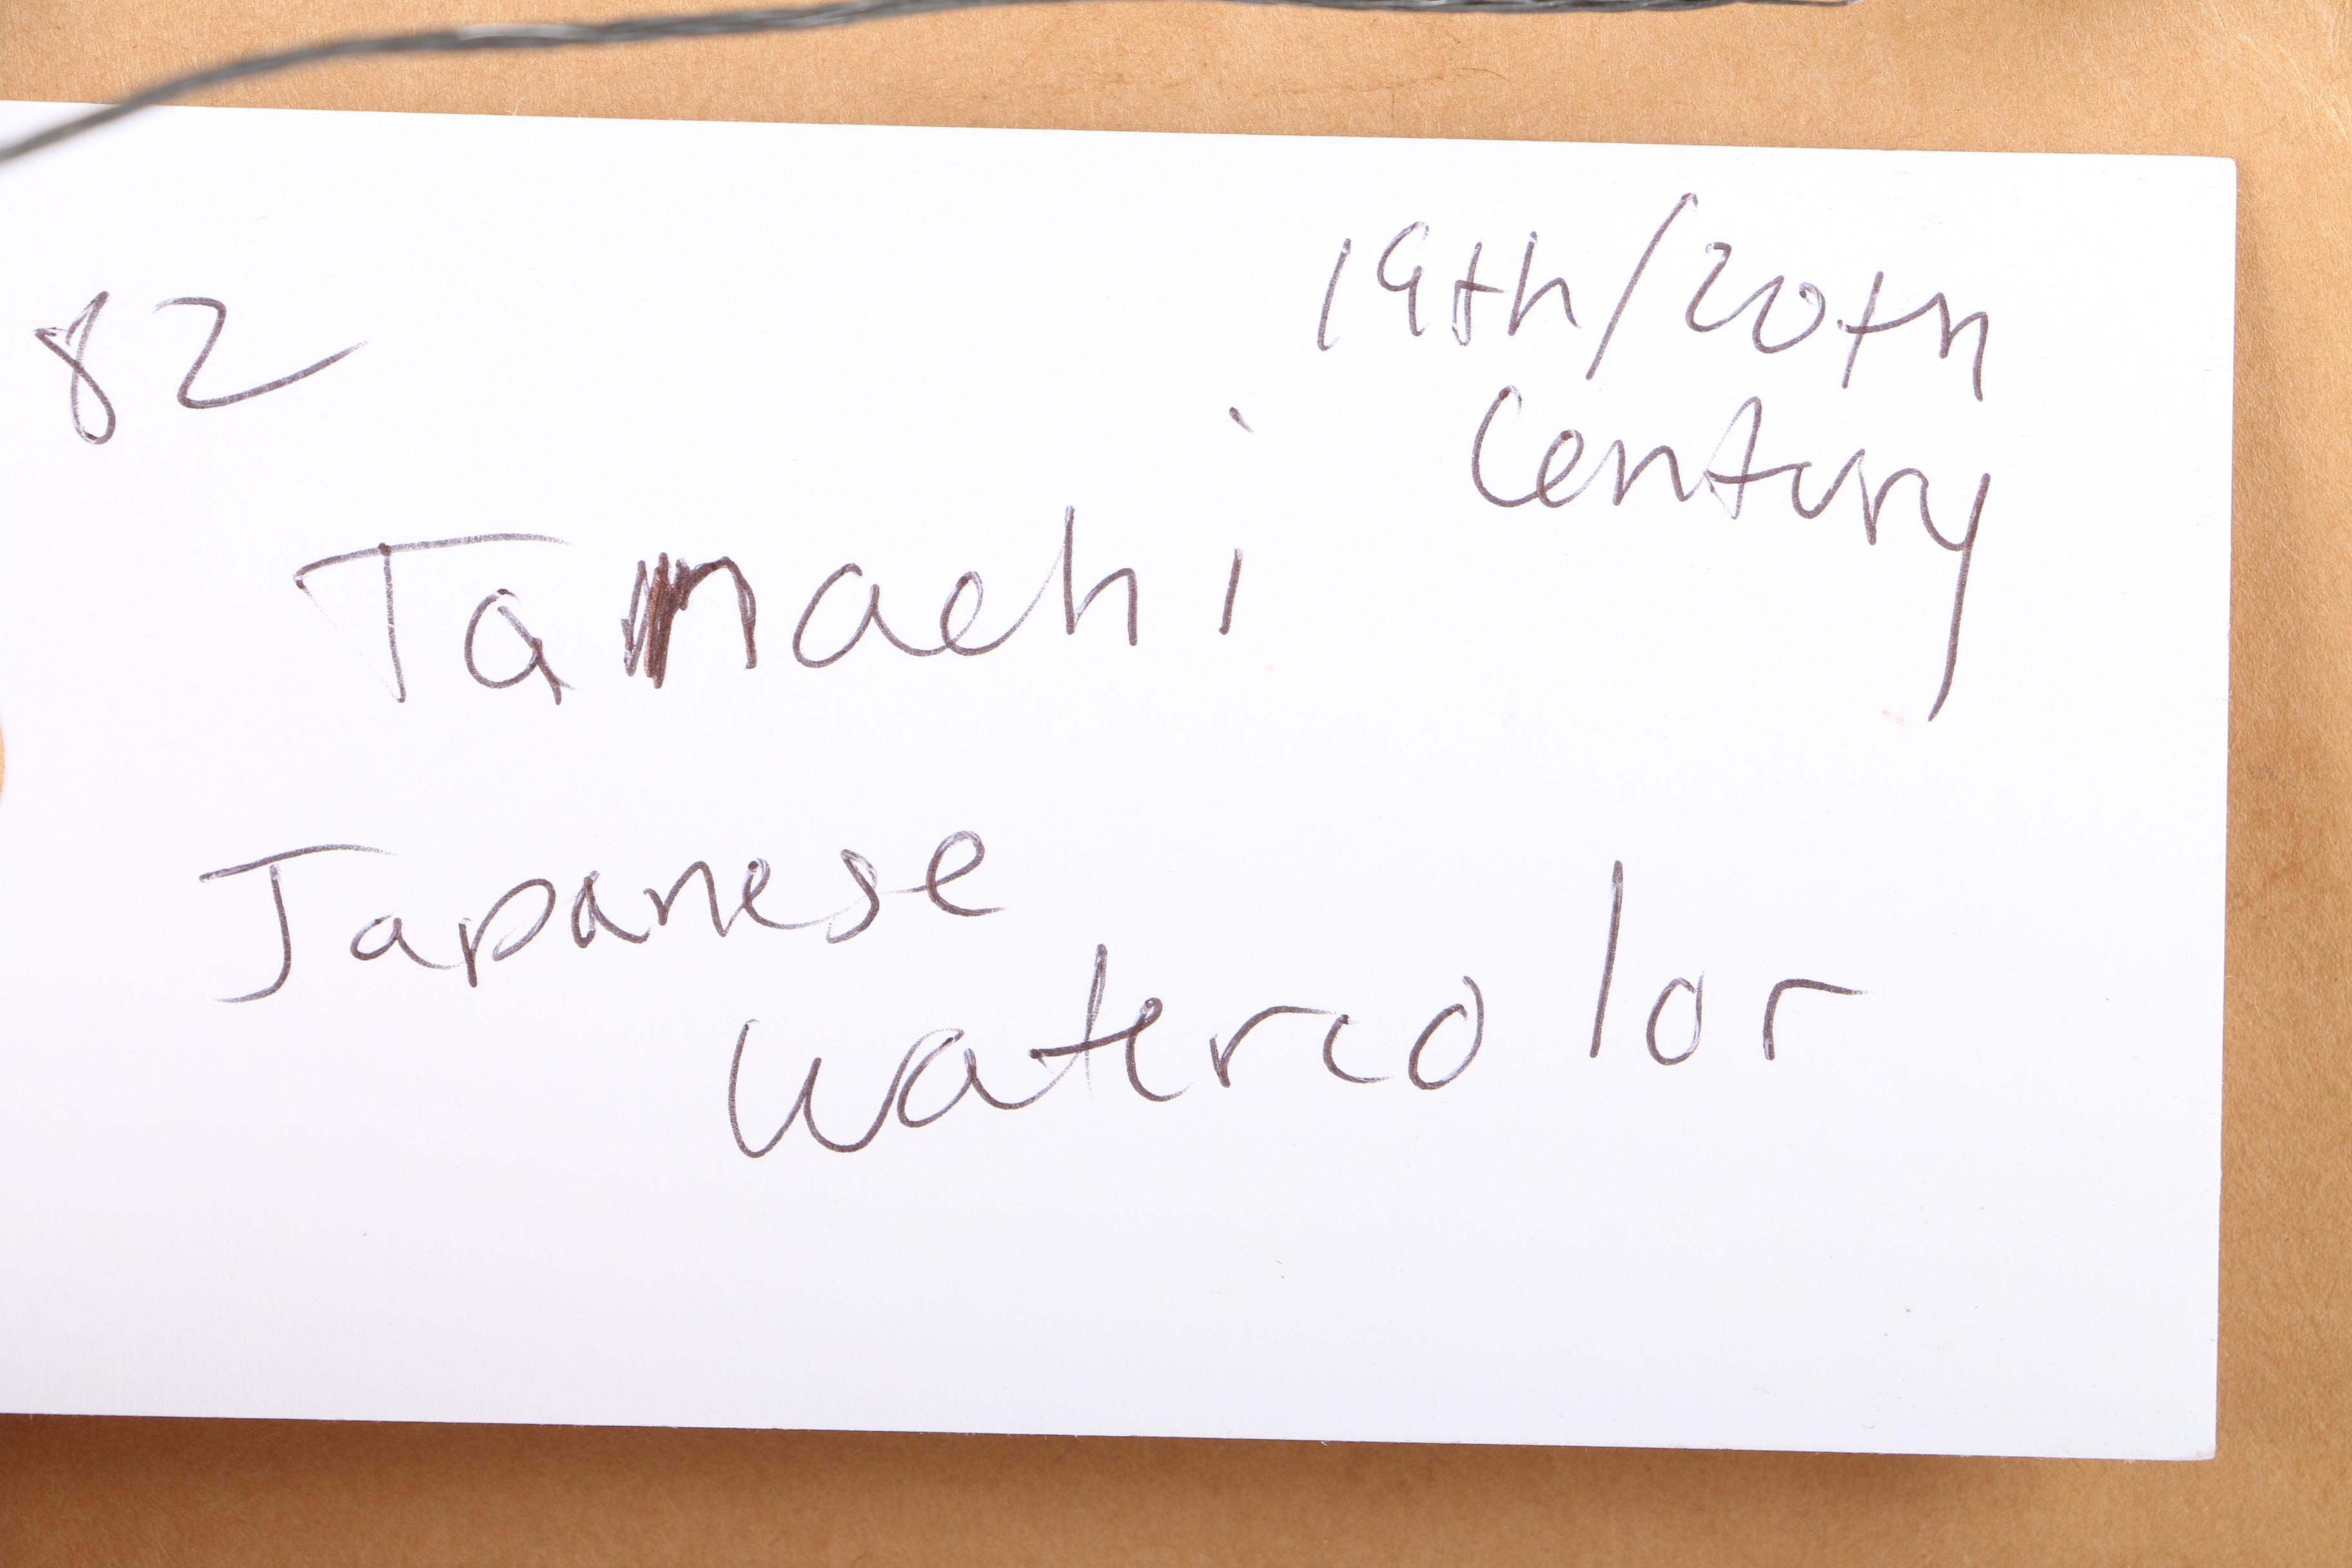 82
19th/20th
Century
Tamachi
Japanese
Watercolor